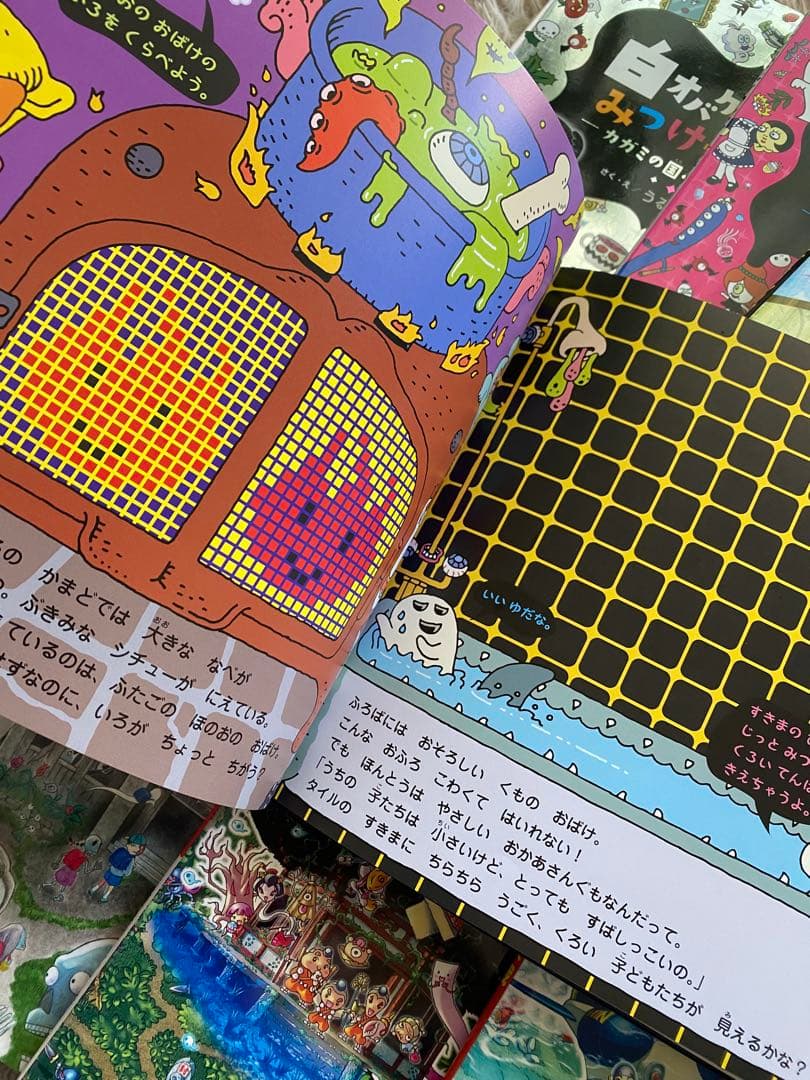 おの おばけの
ろを くらべよう。
白オバケ
みつけ
カガミの国
さく・え/うる
の かまどでは 大きな なべが
ぶきみな シチューが にえている。
ているのは、ふたごの ほのおの おばけ。
ずなのに、いろが ちょっと ちがう?
いいゆだな。
すきまの
じっと みつ
くろい てんは
きえちゃうよ。
ふろばには おそろしい くもの おばけ。
こんな おふろ こわくて はいれない!
でも ほんとうは やさしい おかあさんぐもなんだって。
「うちの 子たちは 小さいけど、とっても すばしっこいの。」
タイルの すきまに ちらちら うごく、くろい 子どもたちが 見えるかな?